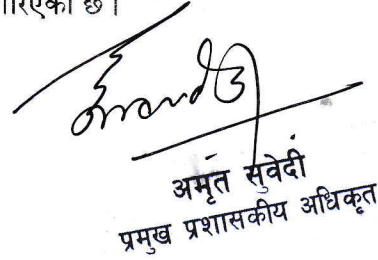 रिएको छ।
अमृत सुवेदी
प्रमुख प्रशासकीय अधिकृत